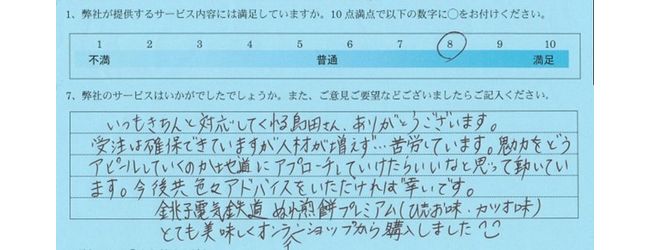 1、弊社が提供するサービス内容には満足していますか。10点満点で以下の数字に○をお付けください。
1 2 3 4 5 6 7 8 9 10
不満 普通 満足
7、弊社のサービスはいかがでしたでしょうか。また、ご意見ご要望などございましたらご記入ください。
いつもきちんと対応してくれる島田さん、ありがとうございます。
受注は確保できていますが人材が増えず…苦労しています。魅力をどう
アピールしていくのか地道にアプローチしていけたらいいなと思って動いてい
ます。今後共色々アドバイスをいただければ幸いです。
銚子電気鉄道 ぬれ煎餅プレミアム(ひしお味・カツオ味)
とても美味しくオンラインショップから購入しました